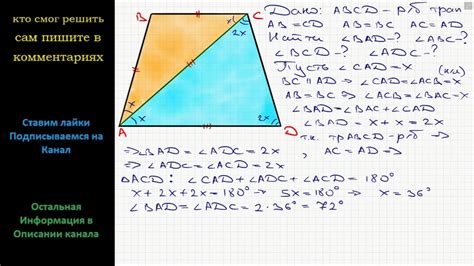 кто смог решить
сам пишите в
комментариях
Ставим лайки
Подписываемся на
Канал
Остальная
Информация в
Описании канала
B
C
x
2x
x
x
2x
A
D
Дано: ABCD - р/б трап
AB = CD AB = BC AC = AD
Найти ∠BAD-? ∠ABC-?
∠BCD-? ∠ADC-?
Пусть ∠CAD = x (н/л)
BC ∥ AD ⇒ ∠CAD = ∠BCA = x
AB = BC ⇒ ∠BCA = ∠BAC = x
∠BAD = ∠BAC + ∠CAD
∠BAD = x + x = 2x
т.к. трABCD - р/б ⇒
⇒ ∠BAD = ∠ADC = 2x , AC = AD ⇒
⇒ ∠ADC = ∠ACD = 2x
△ACD: ∠CAD + ∠ADC + ∠ACD = 180°
x + 2x + 2x = 180° ⇒ 5x = 180° ⇒ x = 36°
∠BAD = ∠ADC = 2·36° = 72°